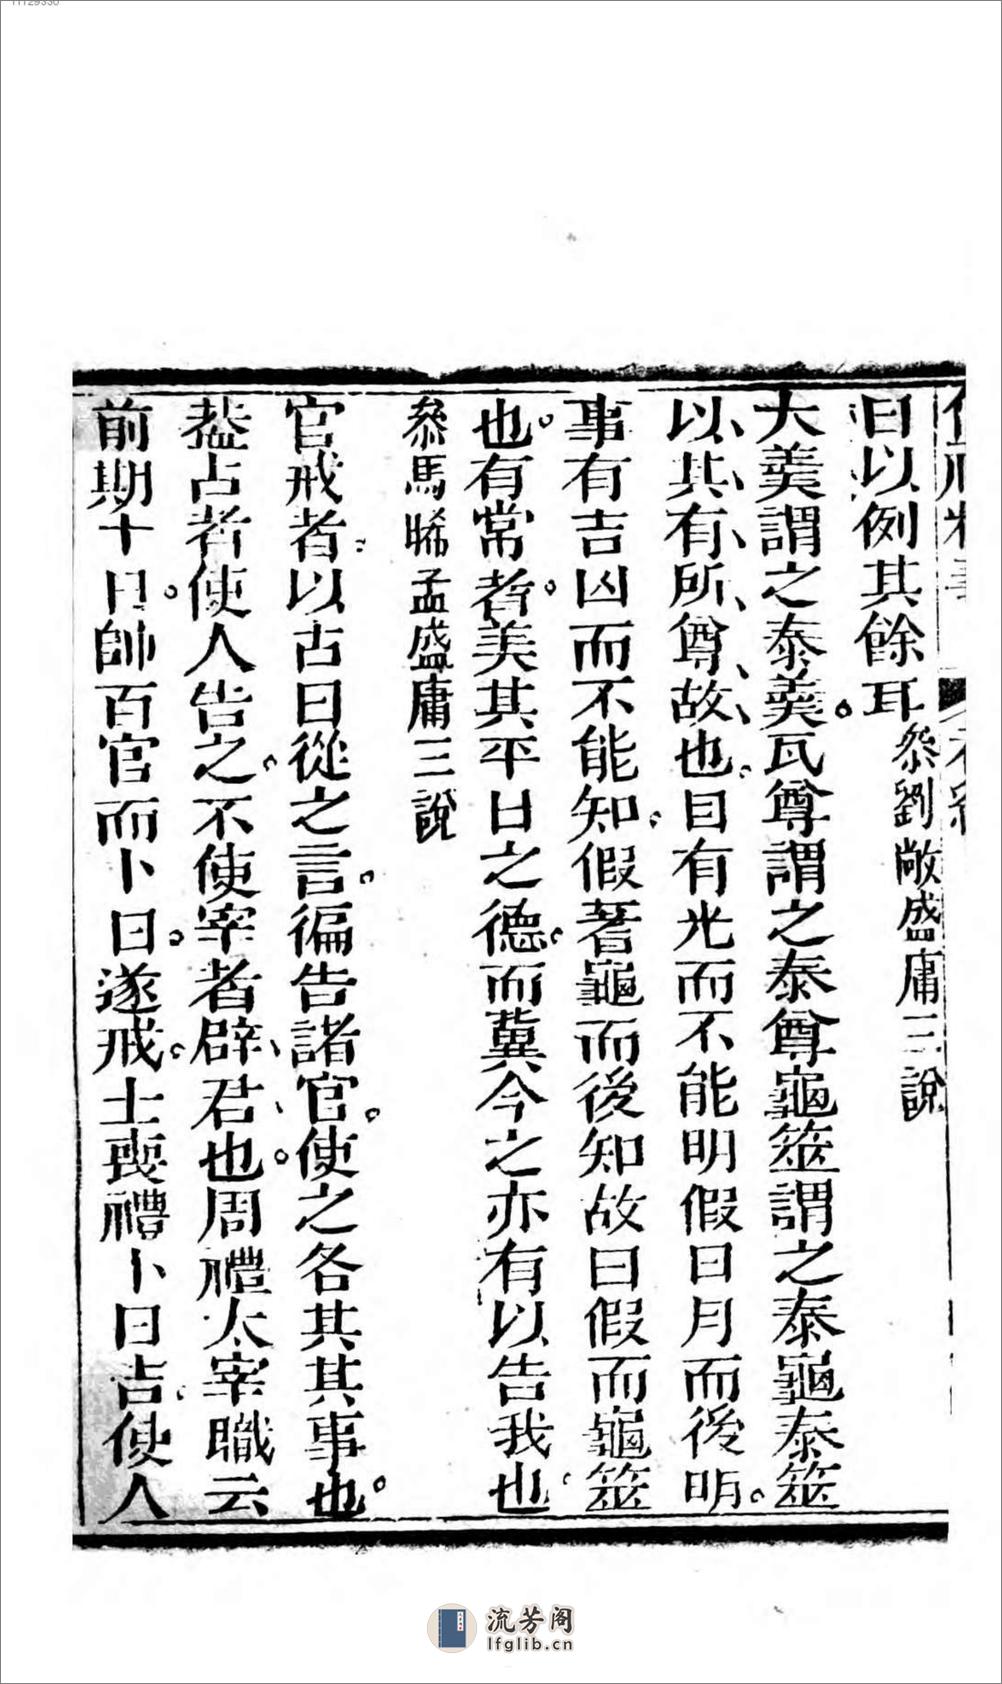 日以例其餘耳叅劉敞盛庸三說
大羹謂之泰羹瓦尊謂之泰尊龜筮謂之泰龜泰筮
以其有所尊故也目有光而不能明假日月而後明
事有吉凶而不能知假蓍龜而後知故曰假而龜筮
也有常者美其平日之德而冀今之亦有以告我也
叅馬晞孟盛庸三說
官戒者以占曰從之言徧告諸官使之各其其事也
葢占者使人告之不使宰者辟君也周禮太宰職云
前期十日帥百官而卜日遂戒士喪禮卜日吉使人
流芳阁
lfglib.cn